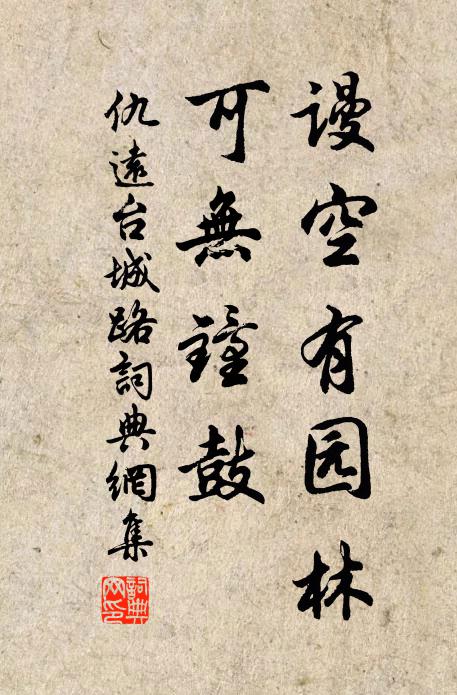 谩空有园林
可無鐘鼓
仇遠台城路詞典網集
詞典网印